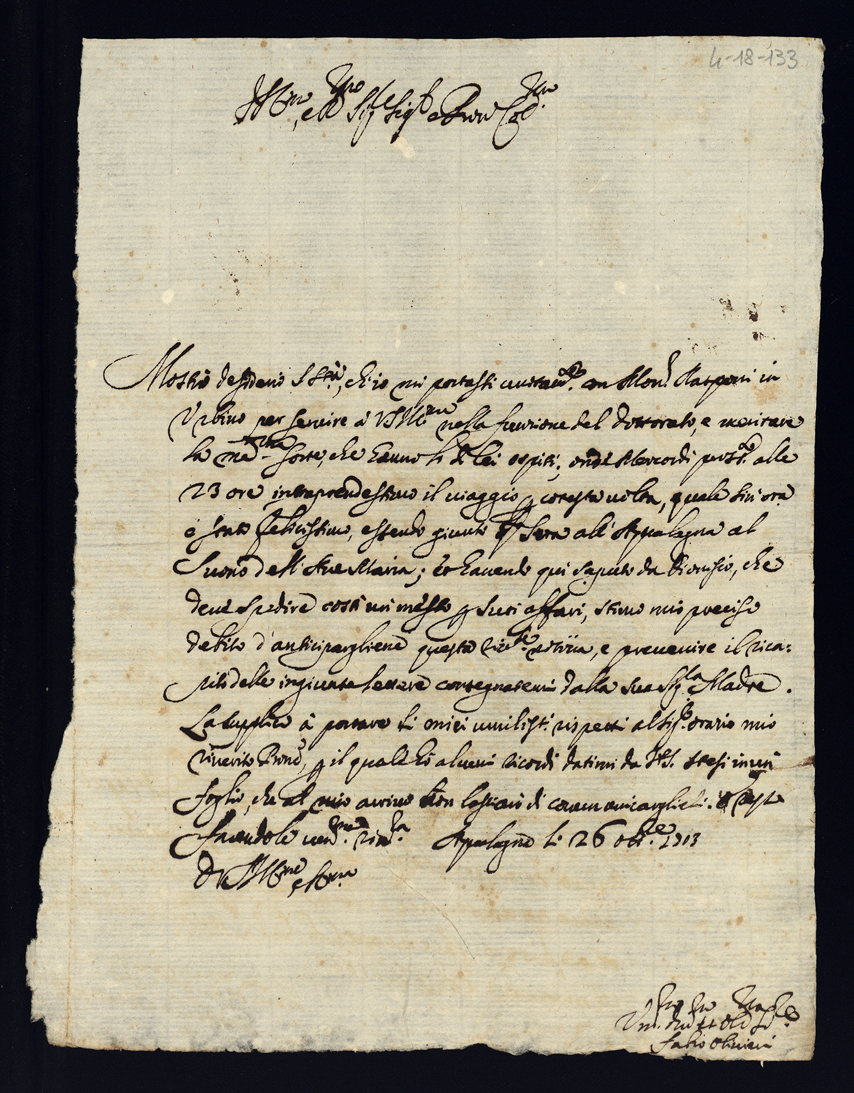 4-18-133
Ill.mo, e R.mo Sig.re Sig.r e Pron Col.mo
Mostrò desiderio S. S.tà, ch'io mi portassi unitam.te con Mons.r Rasponi in
Urbino per servire à VS Ill.ma nella funzione del dottorato, e meritare
la med.ma sorte, che hanno li di lei ospiti; onde Mercordì pross.o alle
23 ore intraprendessimo il viaggio p cotesta volta, quale sin'ora
è stato felicissimo, essendo giunto sera all'Aqualagna al
Suono dell'Ave Maria; et havendo qui saputo da Dionisio, che
deve spedire costì un messo p suoi affari, stimo mio preciso
debito d'anticipargliene questa notizia, e prevenire il rica=
pito delle ingiunte lettere consegnatemi dalla sua Sig.ra Madre.
La supplico à portare li miei umiliss.i rispetti al Sig.r Orazio mio
riverito Prone, p il quale hò alcuni ricordi datimi da stesi in un
foglio, che al mio arrivo non lasciarò di communicarglieli. E resto
facendole um.ma river.za Aqualagna li 26 ott.e 1713
Di VS Ill.ma, e R.ma
Um.mo Dev.mo et Obl.mo
Fabio Olivieri